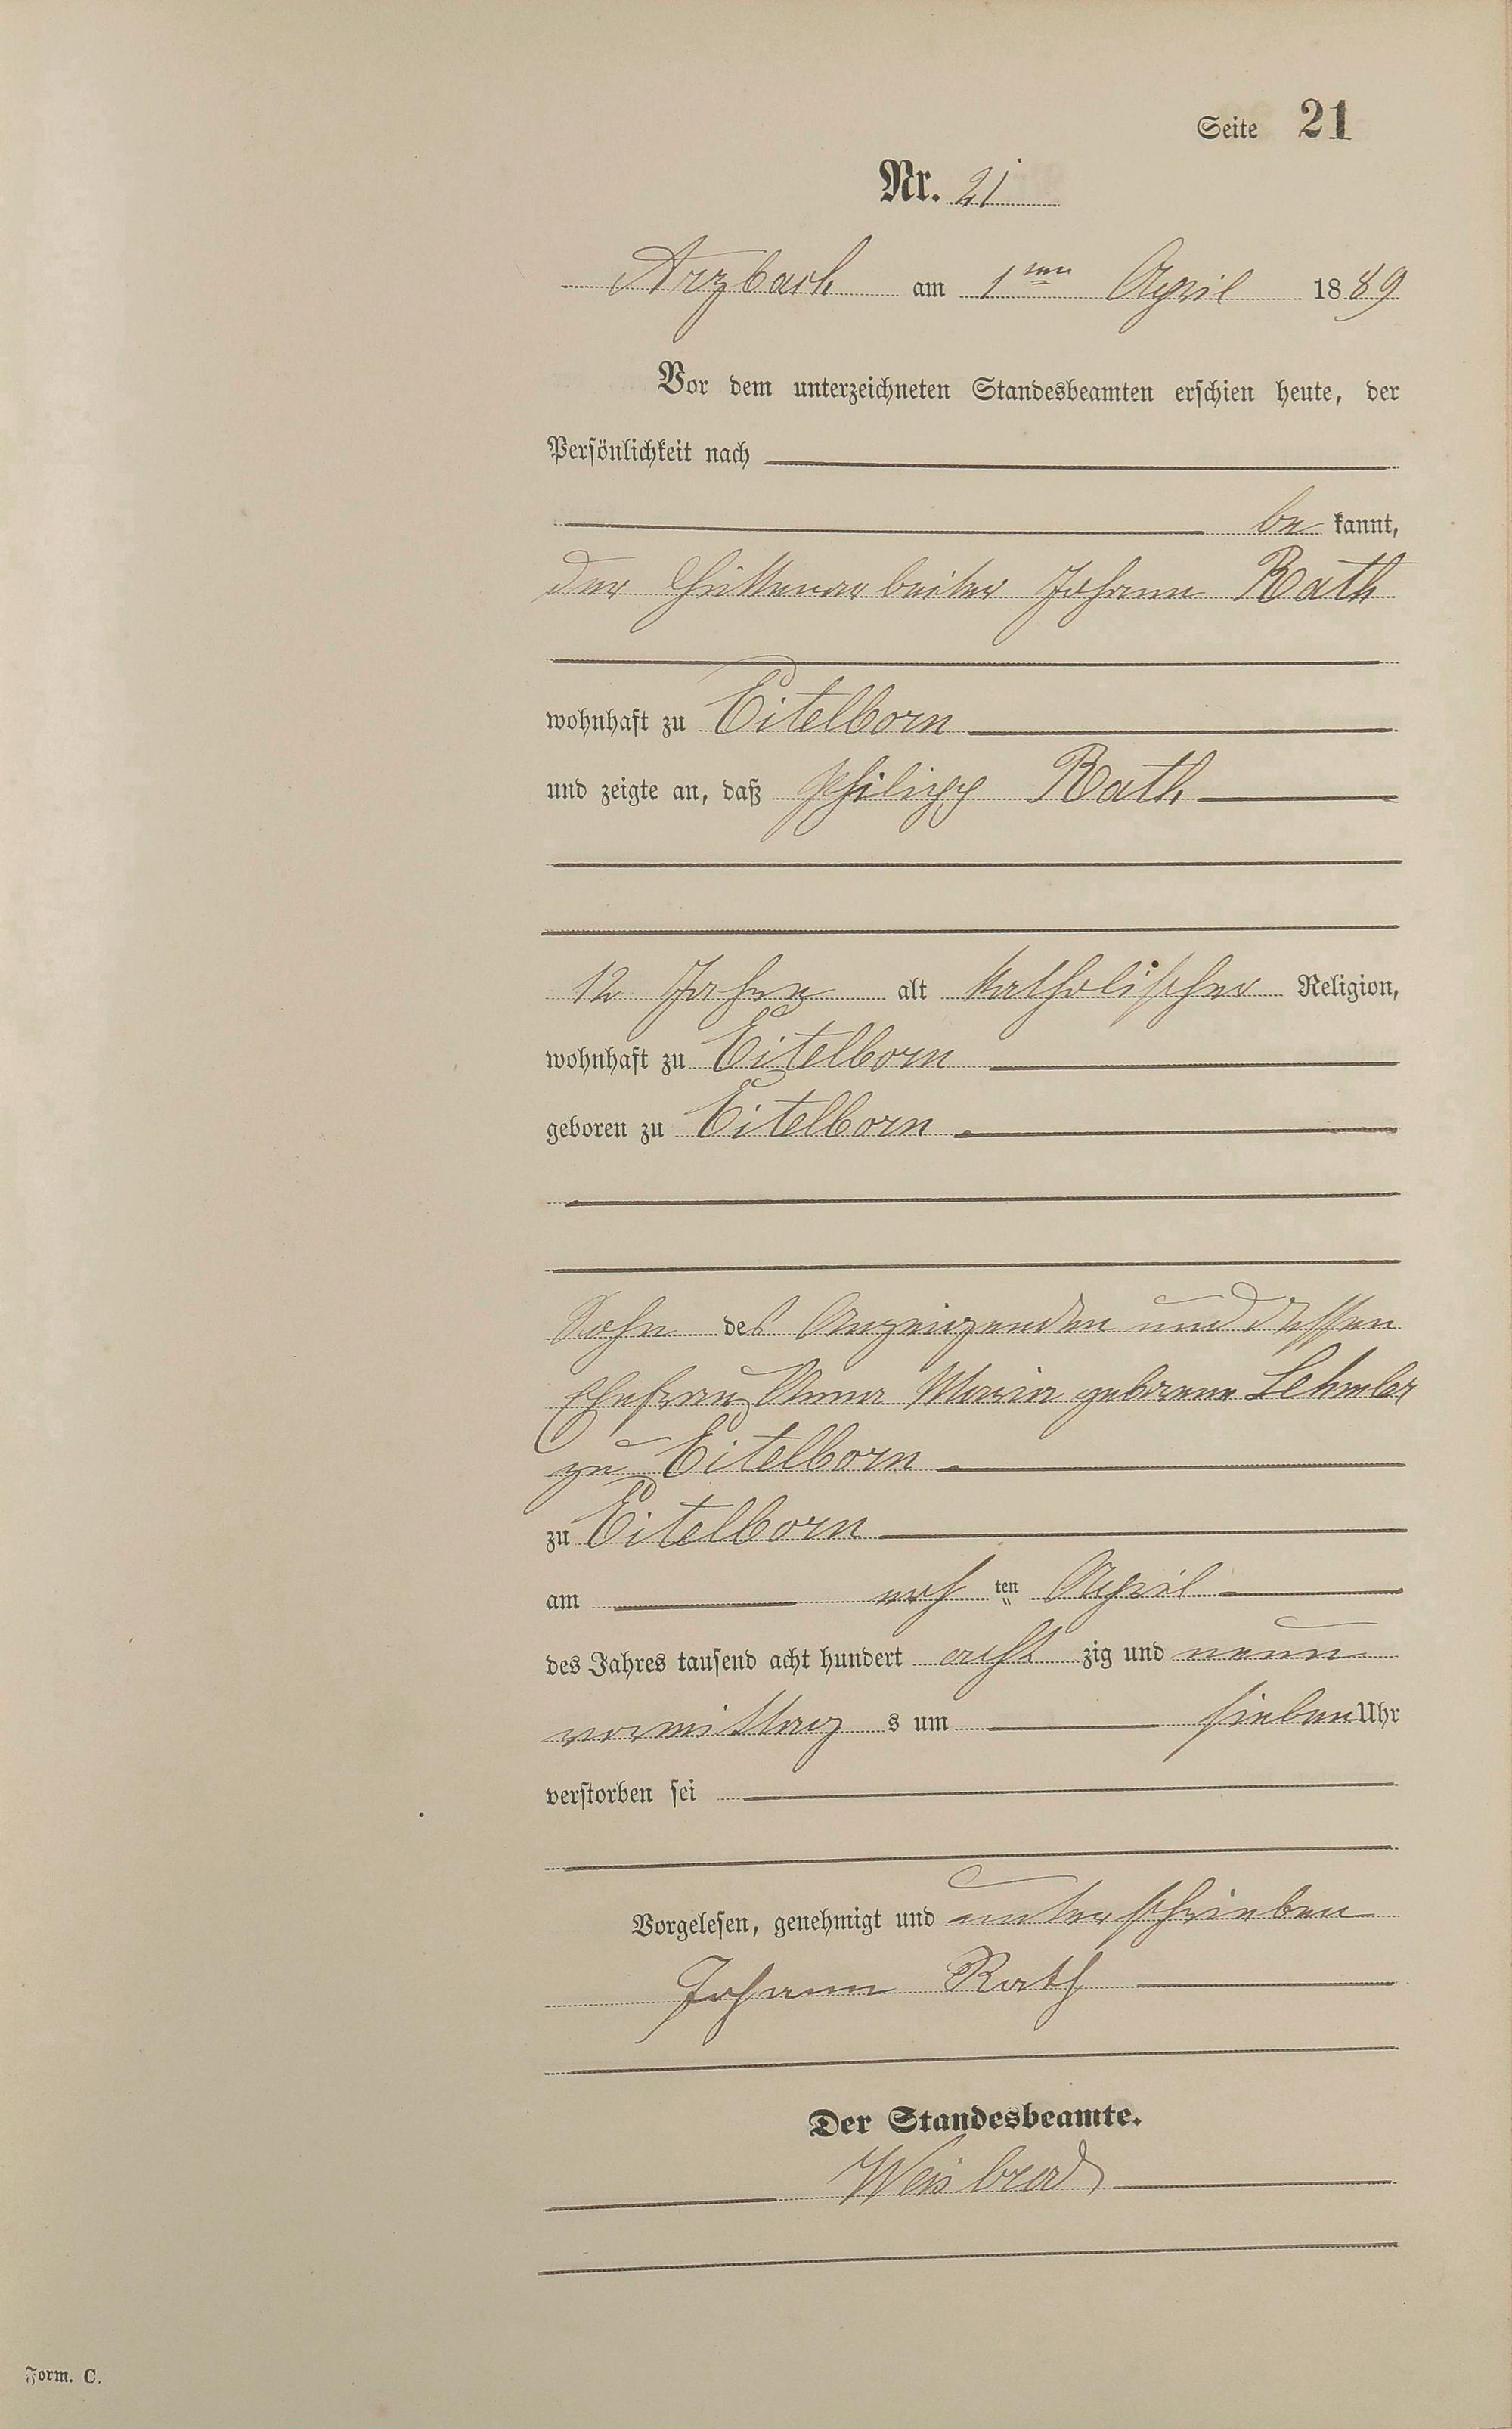 Seite 21
Nr. 21
Arzbach am 1ten April 1889
Vor dem unterzeichneten Standesbeamten erschien heute, der
Persönlichkeit nach
be kannt,
der Hüttenarbeiter Johann Rath
wohnhaft zu Eitelborn
und zeigte an, daß Philipp Rath
12 Jahre alt katholischer Religion,
wohnhaft zu Eitelborn
geboren zu Eitelborn
Sohn des Anzeigenden und dessen
Ehefrau Anna Maria geborene Lehmler
zu Eitelborn
zu Eitelborn
am ers ten April
des Jahres tausend acht hundert acht zig und neun
vormittag s um sieben Uhr
verstorben sei
Vorgelesen, genehmigt und unterschrieben
Johann Rath
Der Standesbeamte.
Weisbrod
Form. C.